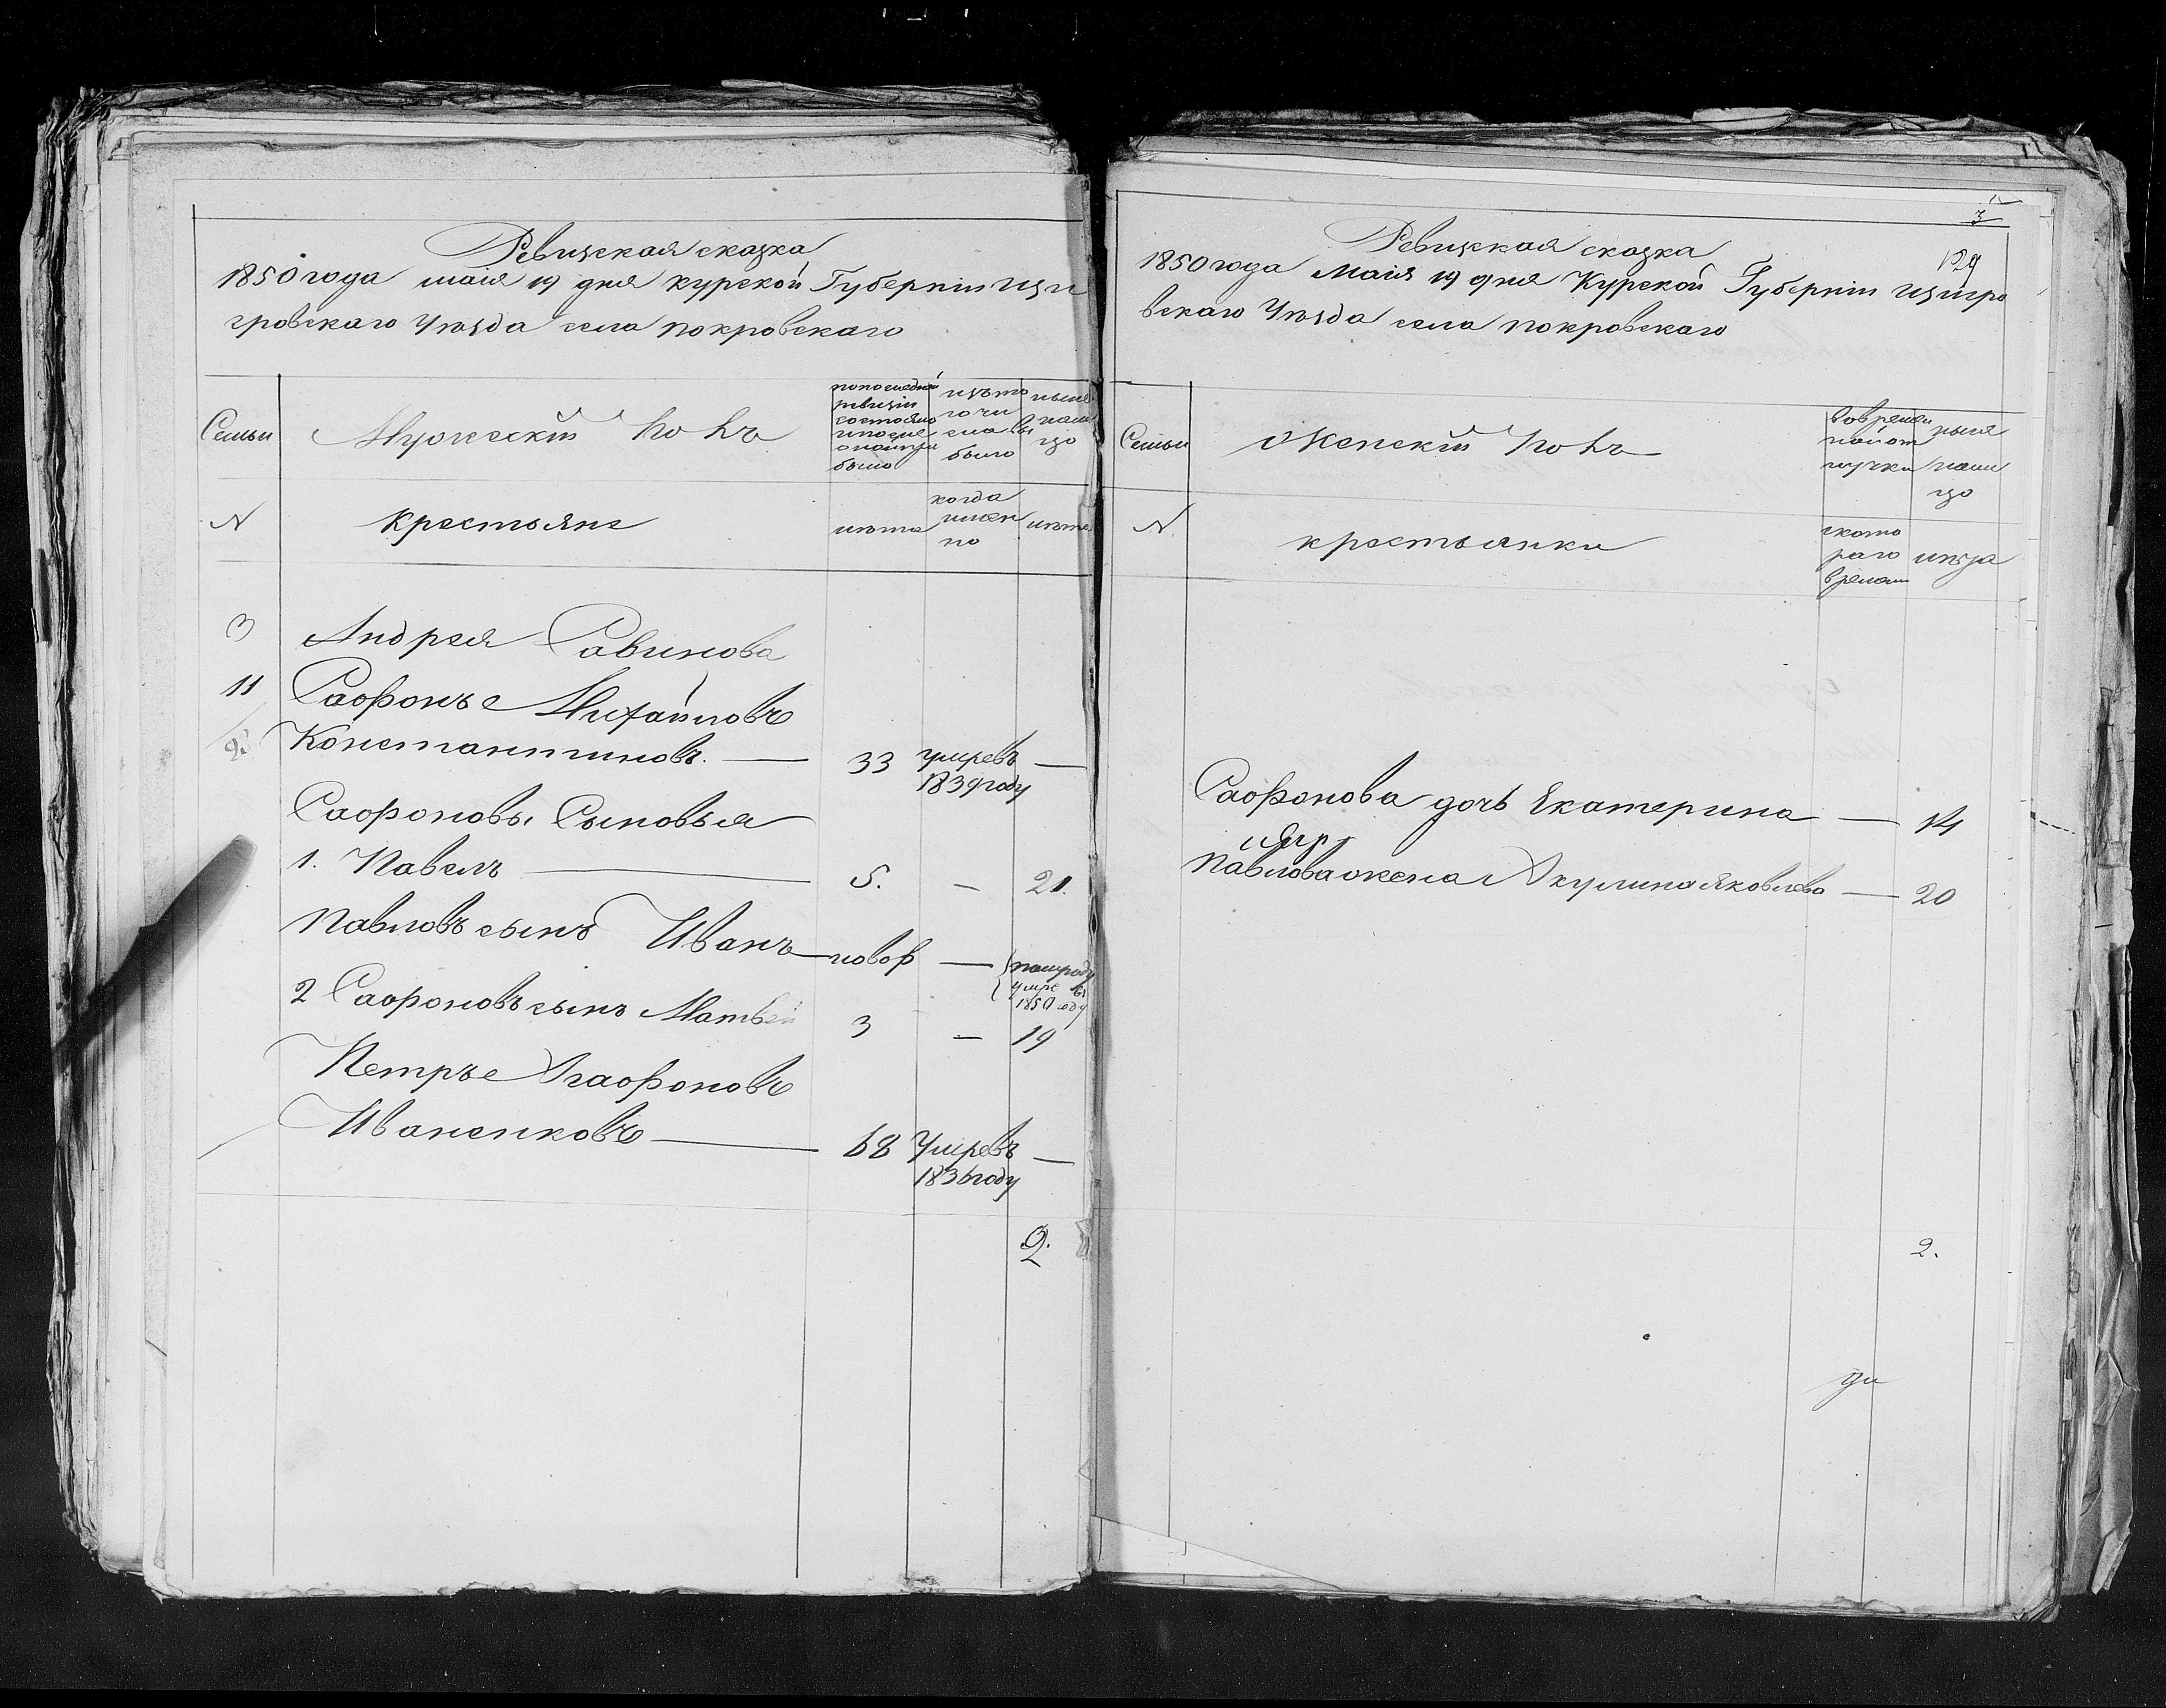 Ревизская сказка
1850 года маія 19 дня Курской Губерніи Щи
гровскаго Уѣзда села Покровскаго
Семьи
Мужескій полъ
попоследней
ревизіи
состояло
и после
было
изъ то
го чи
сла вы
было
ныне
нали
цо
N
Крестьяне
лѣта
когда
имен
но
лѣта
3
Андрея Савинова
11
Сафонъ Михайловъ
Константиновъ. —
33
умревъ
1839 году
—
Сафоновы Сыновья
1. Павелъ —
5.
—
21.
Павловъ сынъ Иванъ
новор
—
умре
1850 году
2 Сафоновъ сынъ Матвей
3
—
19
Петръ Агафоновъ
Иваненковъ —
68
Умревъ
1836 году
—
2.
3
129
Ревизская сказка
1850 года Маія 19 дня Курской Губерніи Щигро
вскаго Уѣзда села Покровскаго
Семьи
Женскій полъ
во времен
ной от
лучки
ныне
нали
цо
N
крестьянки
с кото
раго
времени
лѣта
Сафонова дочь Екатерина — 14
Павлова жена Акулина Яковлева — 20
2.